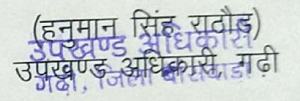 (हनुमान सिंह राठौड़)
उपखण्ड अधिकारी
उपखण्ड अधिकारी, गढ़ी
गढ़ी, जिला बांसवाड़ा